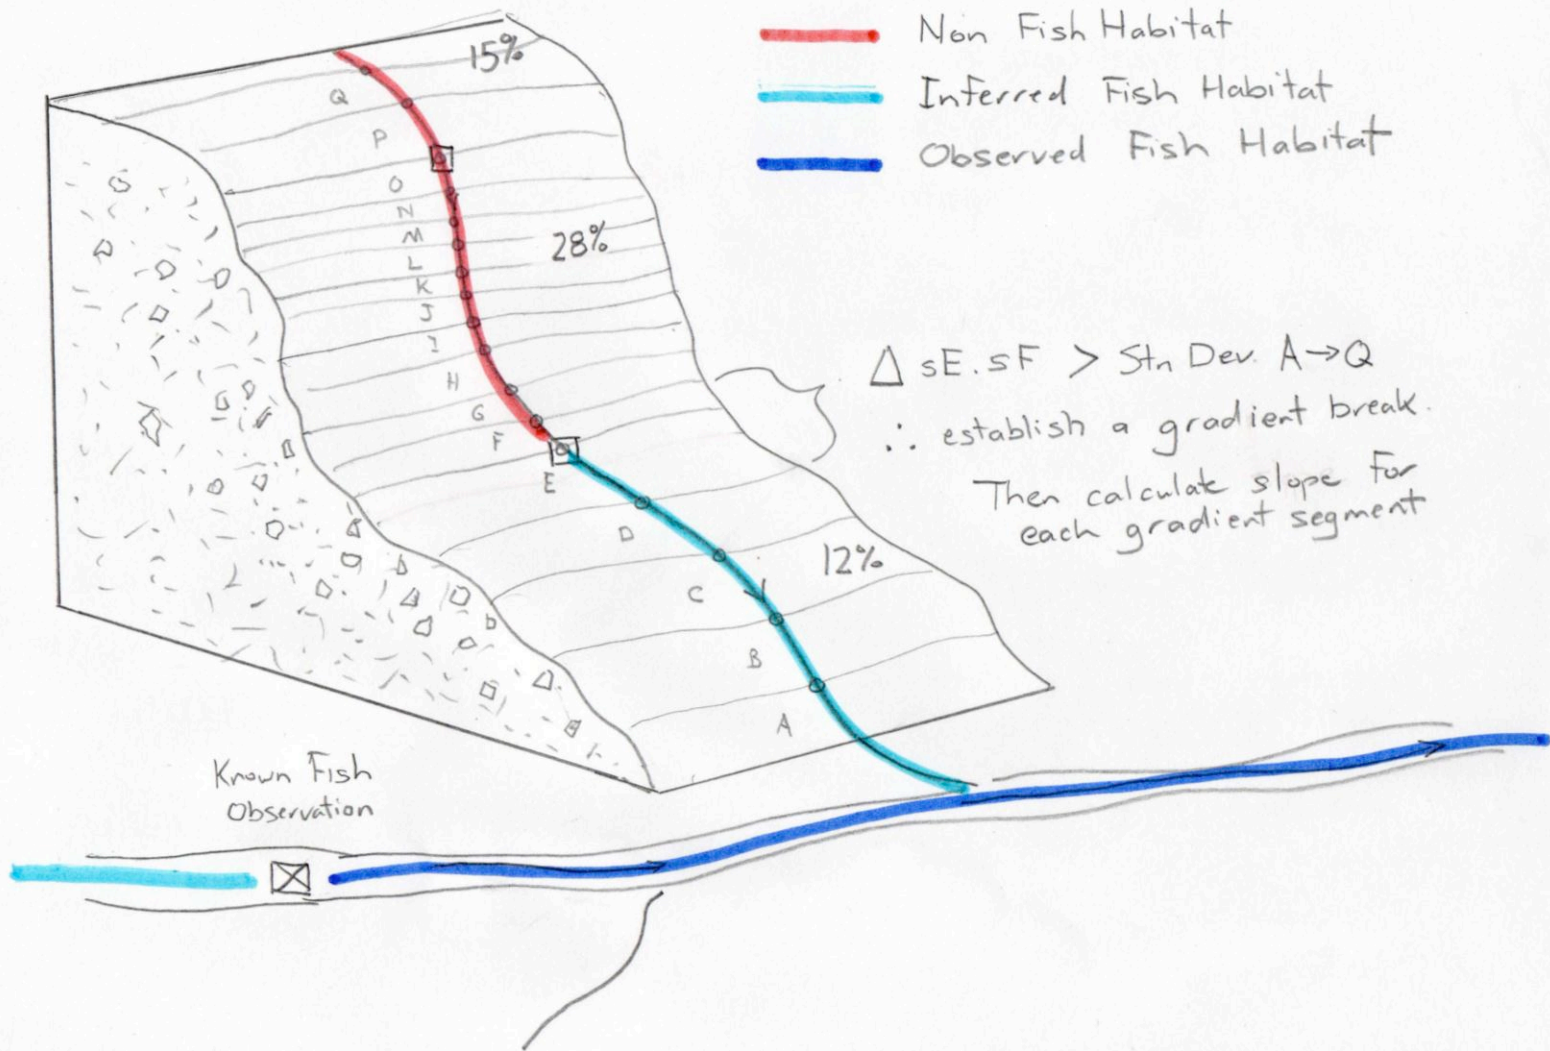 Non Fish Habitat
Inferred Fish Habitat
Observed Fish Habitat
15%
Q
P
O
N
M
28%
L
K
J
I
H
G
F
E
Δ sE.sF > Stn Dev. A→Q
∴ establish a gradient break.
Then calculate slope for
each gradient segment
D
12%
C
B
A
Known Fish
Observation